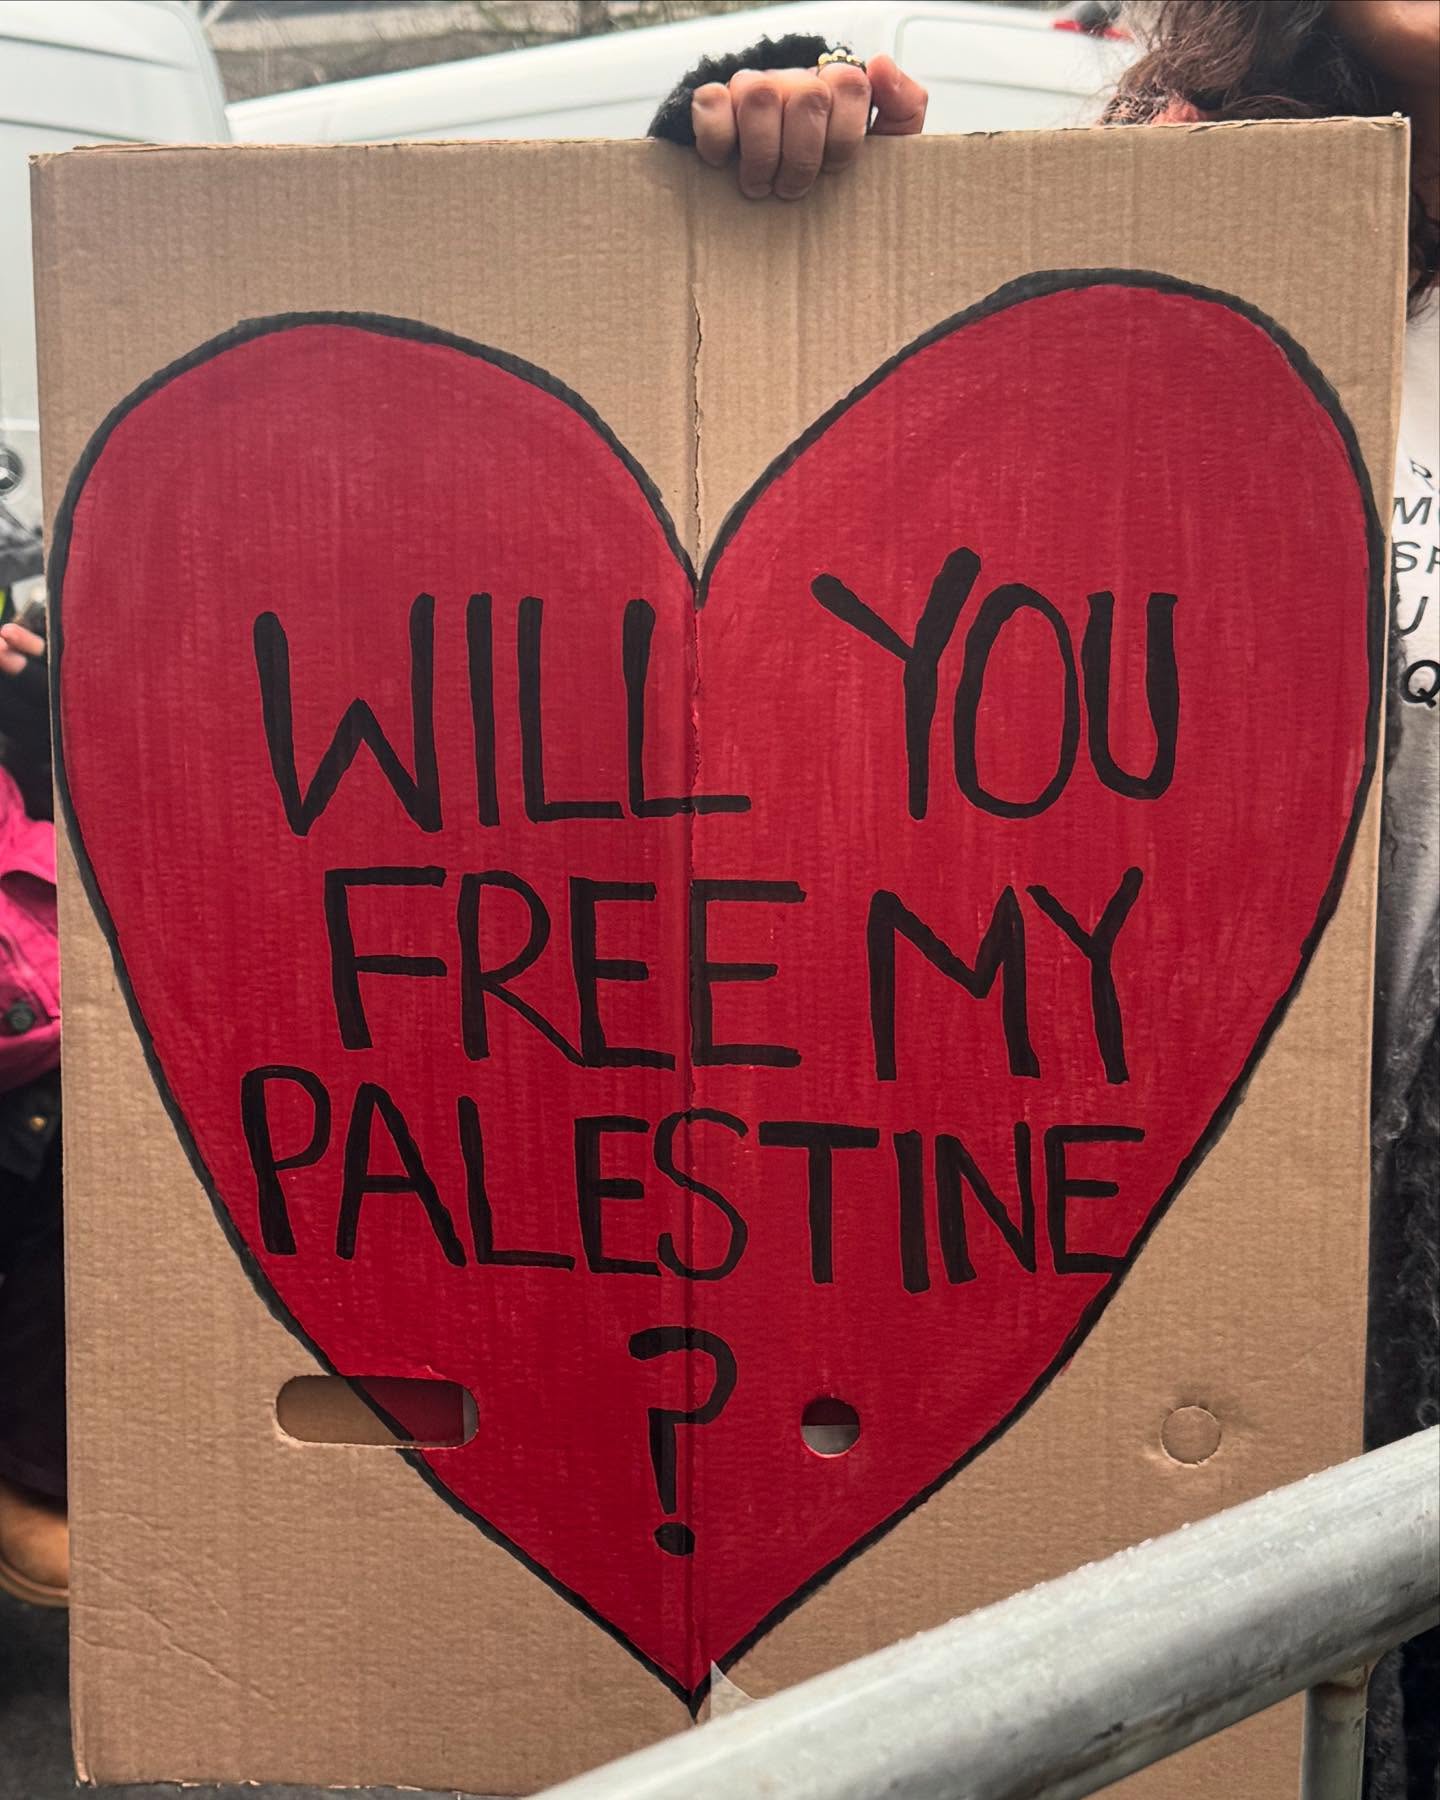 WILL YOU
FREE MY
PALESTINE
?